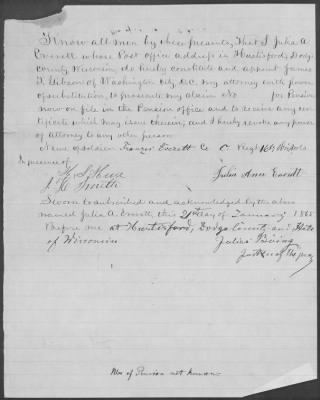 Know all men by these presents, That I Julia A.
Everett whose Post office address is Hustisford, Dodge
County Wisconsin do hereby constitute and appoint James
T. Gibson of Washington City, D.C. my attorney with power
of substitution, to prosecute my claim No for Pension
now on file in the Pension office and to receive any cer-
tificate which may issue therein, and I hereby revoke any power
of attorney to any other person
Name of soldier Everett Co C Regt 16th
In presence of
Smith Julia Ann Everett
Sworn to subscribed and acknowledged by the above
named Julia A. Everett, this 21st day of January 1865
Before me at Hustisford, Dodge County and State
of Wisconsin
Julius
Justice of the peace
No of Pension not known